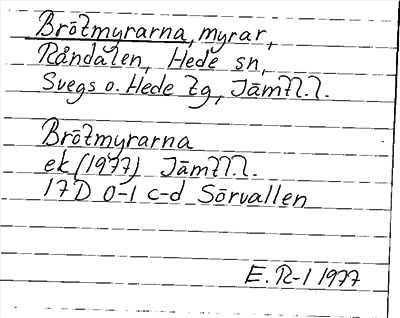 Brötmyrarna, myrar,
Råndalen, Hede sn,
Svegs o. Hede tg, Jämtl.l.
Brötmyrarna
ek (1977) Jämtl.l.
17D 0-1 c-d Sörvallen
E. R-l 1977